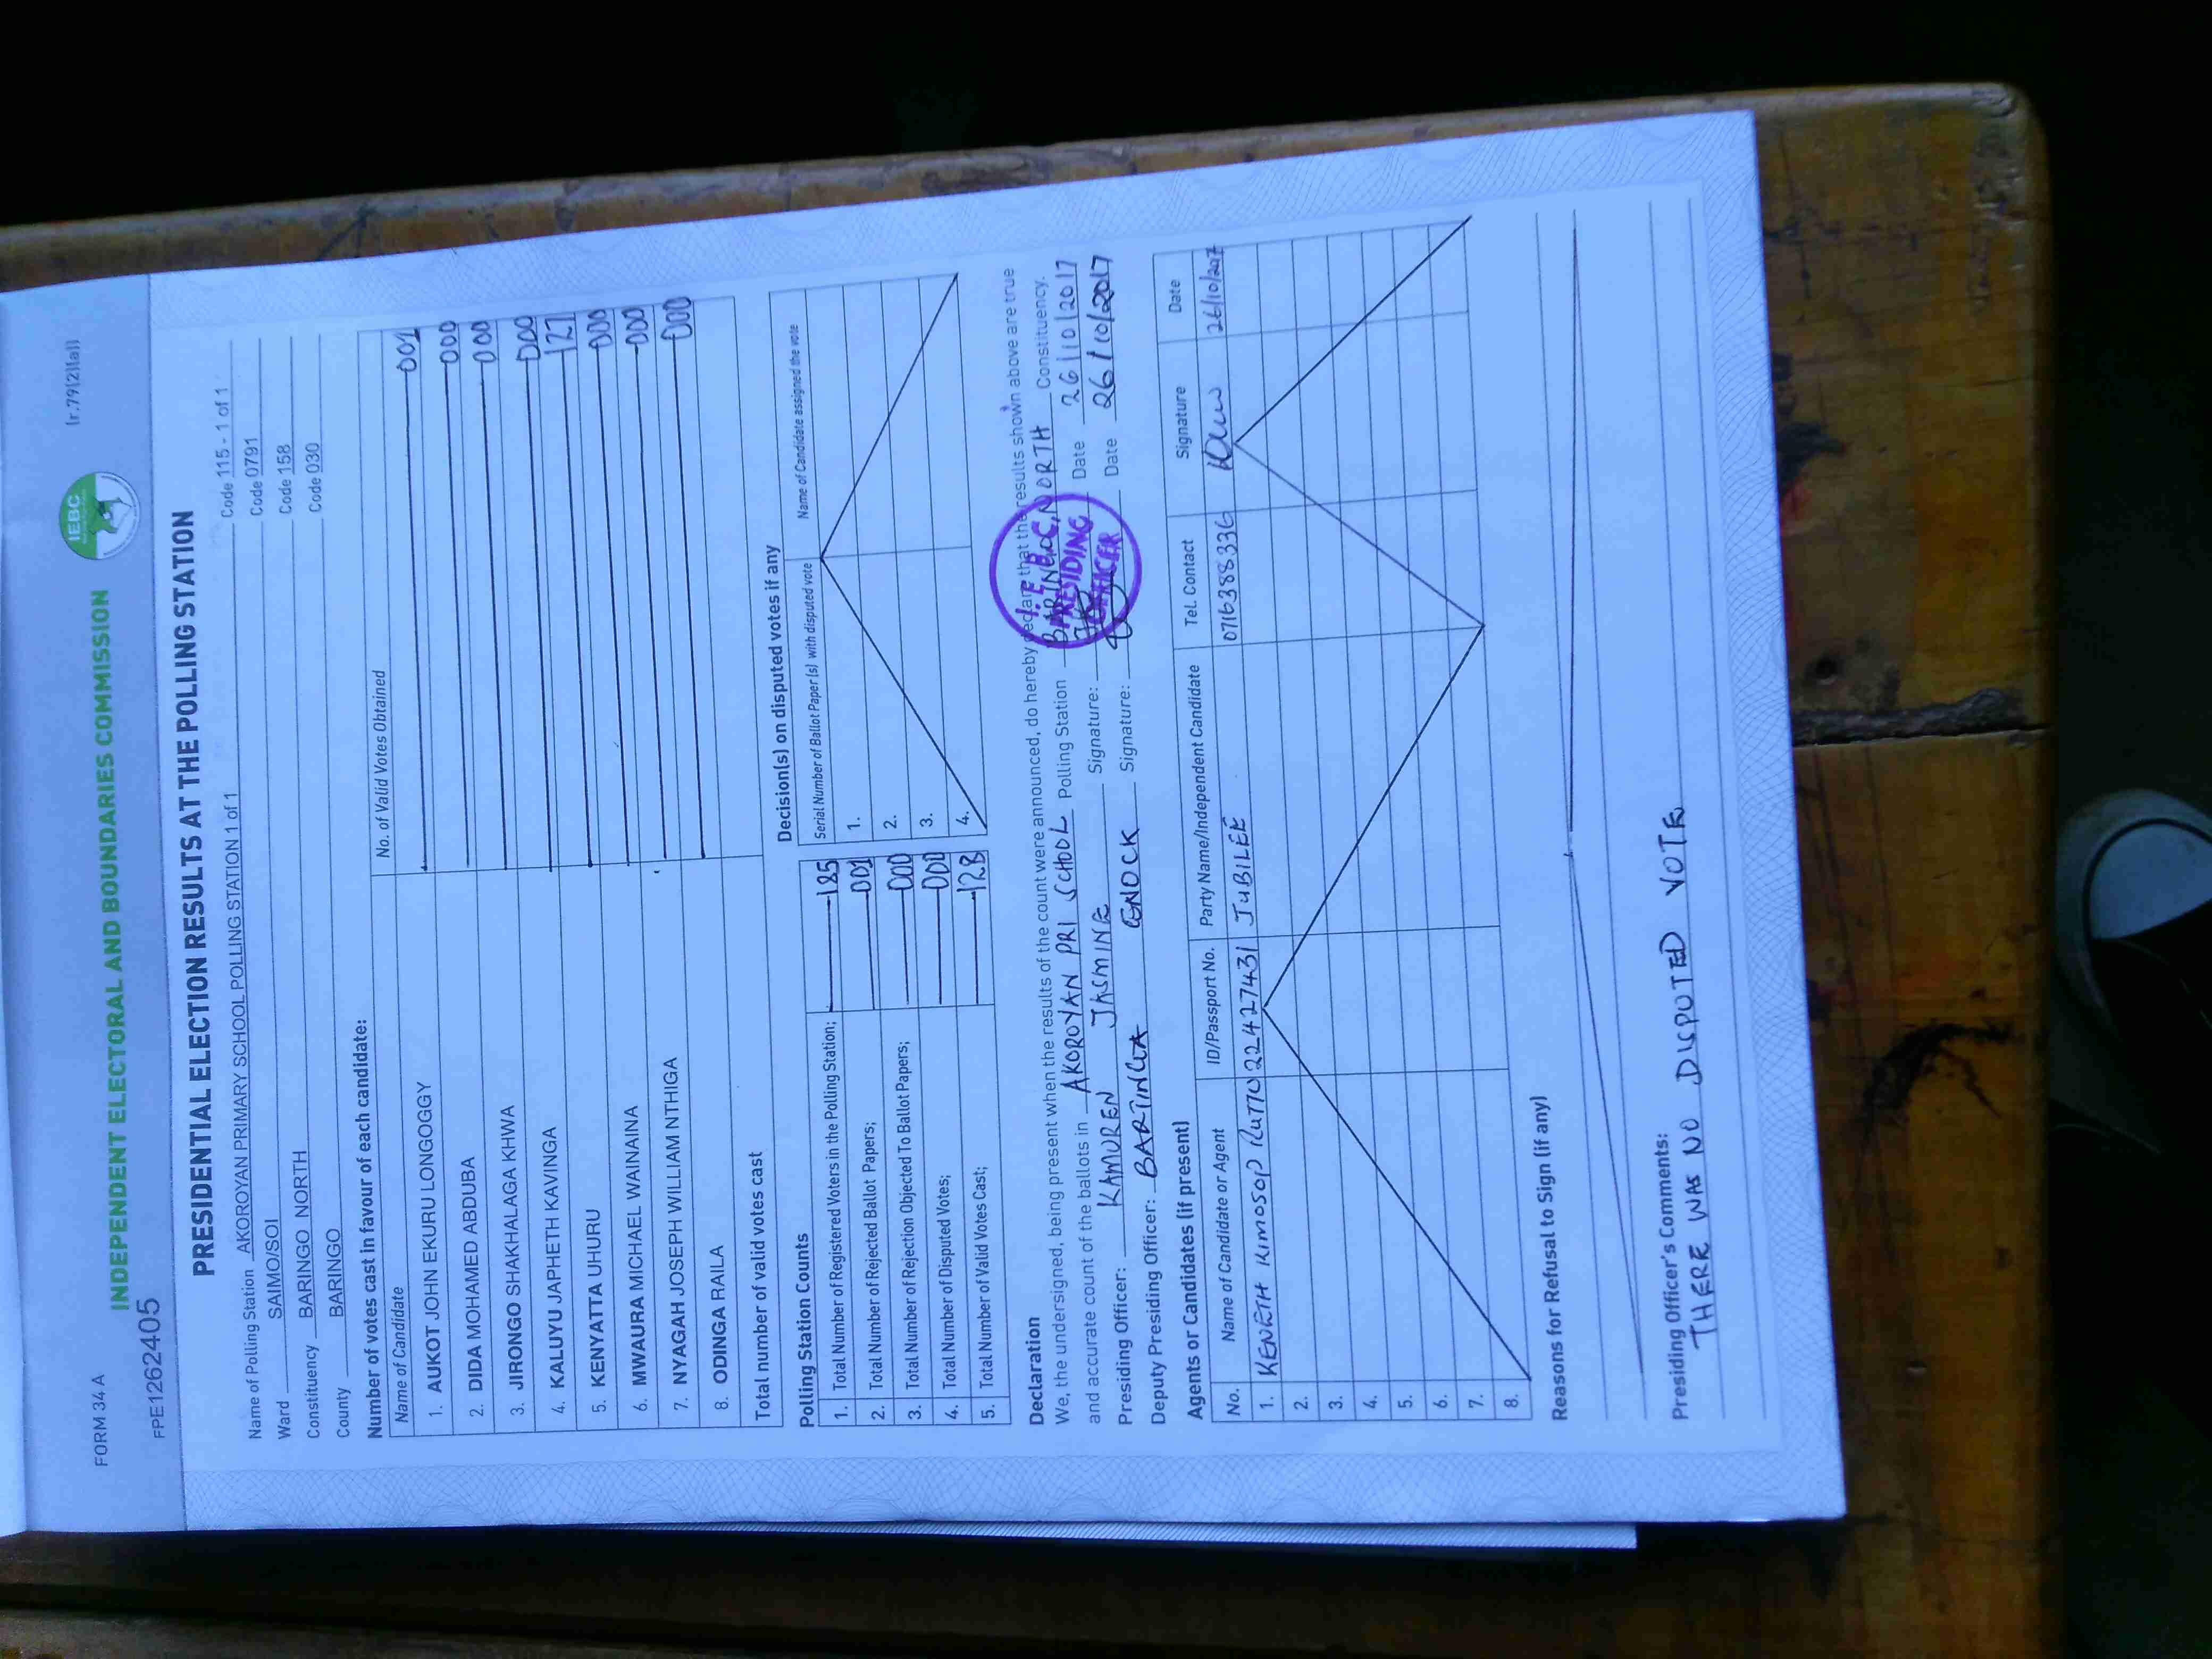 FORM 34 A
(r.79(2)(a))
IEBC
INDEPENDENT ELECTORAL AND BOUNDARIES COMMISSION
FPE1262405
PRESIDENTIAL ELECTION RESULTS AT THE POLLING STATION
Name of Polling Station AKOROYAN PRIMARY SCHOOL POLLING STATION 1 of 1 Code 115 - 1 of 1
Ward SAIMO/SOI Code 0791
Constituency BARINGO NORTH Code 158
County BARINGO Code 030
Number of votes cast in favour of each candidate:
Name of Candidate No. of Valid Votes Obtained
1. AUKOT JOHN EKURU LONGOGGY 001
2. DIDA MOHAMED ABDUBA 000
3. JIRONGO SHAKHALAGA KHWA 000
4. KALUYU JAPHETH KAVINGA 000
5. KENYATTA UHURU 127
6. MWAURA MICHAEL WAINAINA 000
7. NYAGAH JOSEPH WILLIAM NTHIGA 000
8. ODINGA RAILA 000
Total number of valid votes cast
Polling Station Counts
1. Total Number of Registered Voters in the Polling Station; 185
2. Total Number of Rejected Ballot Papers; 001
3. Total Number of Rejection Objected To Ballot Papers; 000
4. Total Number of Disputed Votes; 000
5. Total Number of Valid Votes Cast; 128
Decision(s) on disputed votes if any
Serial Number of Ballot Paper (s) with disputed vote Name of Candidate assigned the vote
1.
2.
3.
4.
Declaration
We, the undersigned, being present when the results of the count were announced, do hereby declare that the results shown above are true
and accurate count of the ballots in AKOROYAN PRI SCHOOL Polling Station BARINGO NORTH Constituency.
Presiding Officer: KAMUREN JASMINE Signature: Date 26/10/2017
Deputy Presiding Officer: BARTINGA ENOCK Signature: Date 26/10/2017
I.E.B.C,
PRESIDING
OFFICER
Agents or Candidates (if present)
No. Name of Candidate or Agent ID/Passport No. Party Name/Independent Candidate Tel. Contact Signature Date
1. KENETH KIMOSOP RUTTO 22427431 JUBILEE 0716388336 26/10/2017
2.
3.
4.
5.
6.
7.
8.
Reasons for Refusal to Sign (if any)
Presiding Officer's Comments:
THERE WAS NO DISPUTED VOTE